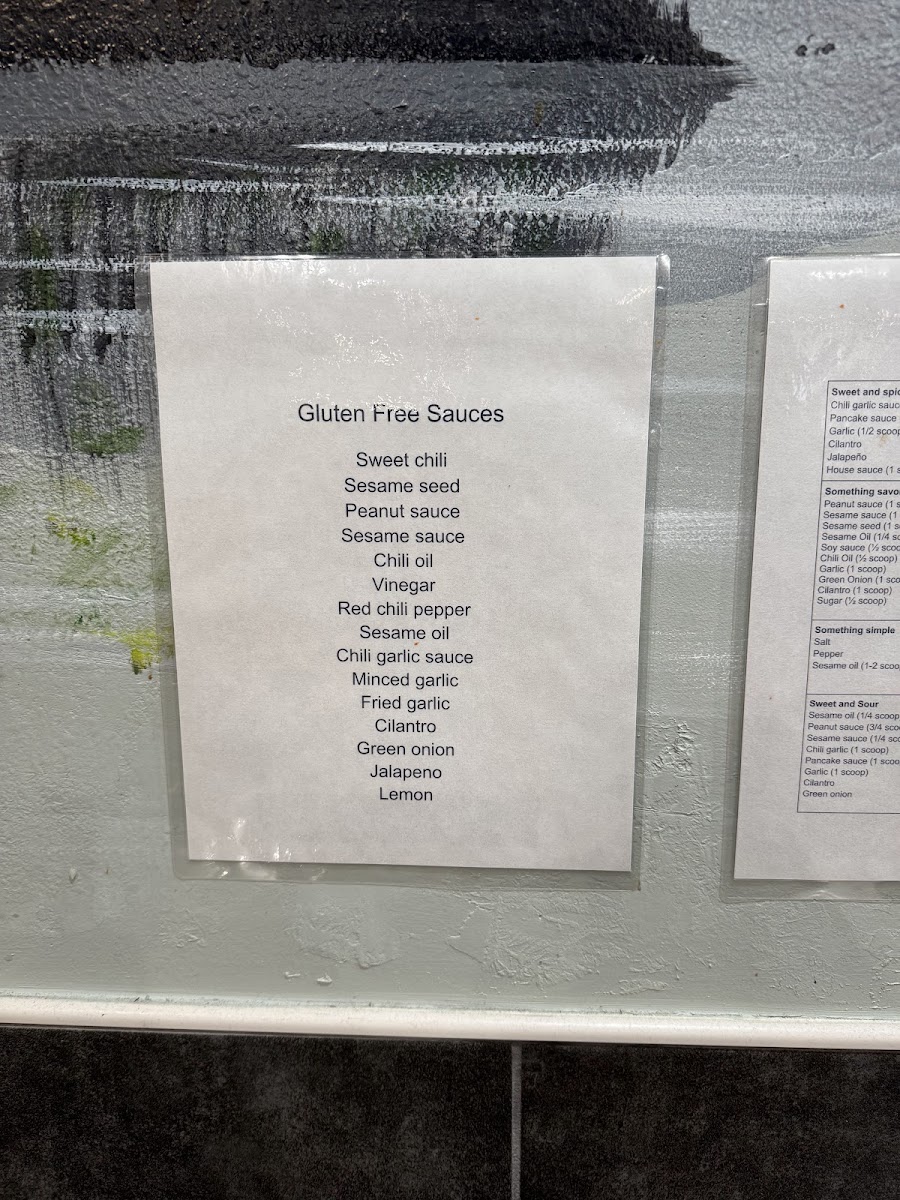 Gluten Free Sauces
Sweet chili
Sesame seed
Peanut sauce
Sesame sauce
Chili oil
Vinegar
Red chili pepper
Sesame oil
Chili garlic sauce
Minced garlic
Fried garlic
Cilantro
Green onion
Jalapeno
Lemon
Sweet and
Chili garlic
Pancake sauce
Garlic (1/2
Cilantro
Jalapeño
House sauce (1
Something
Peanut sauce (1
Sesame sauce (1
Sesame seed (1
Sesame Oil (1/4
Soy sauce (½
Chili Oil (½ scoop)
Garlic (1 scoop)
Green Onion (1
Cilantro (1 scoop)
Sugar (½ scoop)
Something simple
Salt
Pepper
Sesame oil (1-2
Sweet and Sour
Sesame oil (1/4 scoop
Peanut sauce (3/4
Sesame sauce (1/4
Chili garlic (1 scoop)
Pancake sauce (1
Garlic (1 scoop)
Cilantro
Green onion